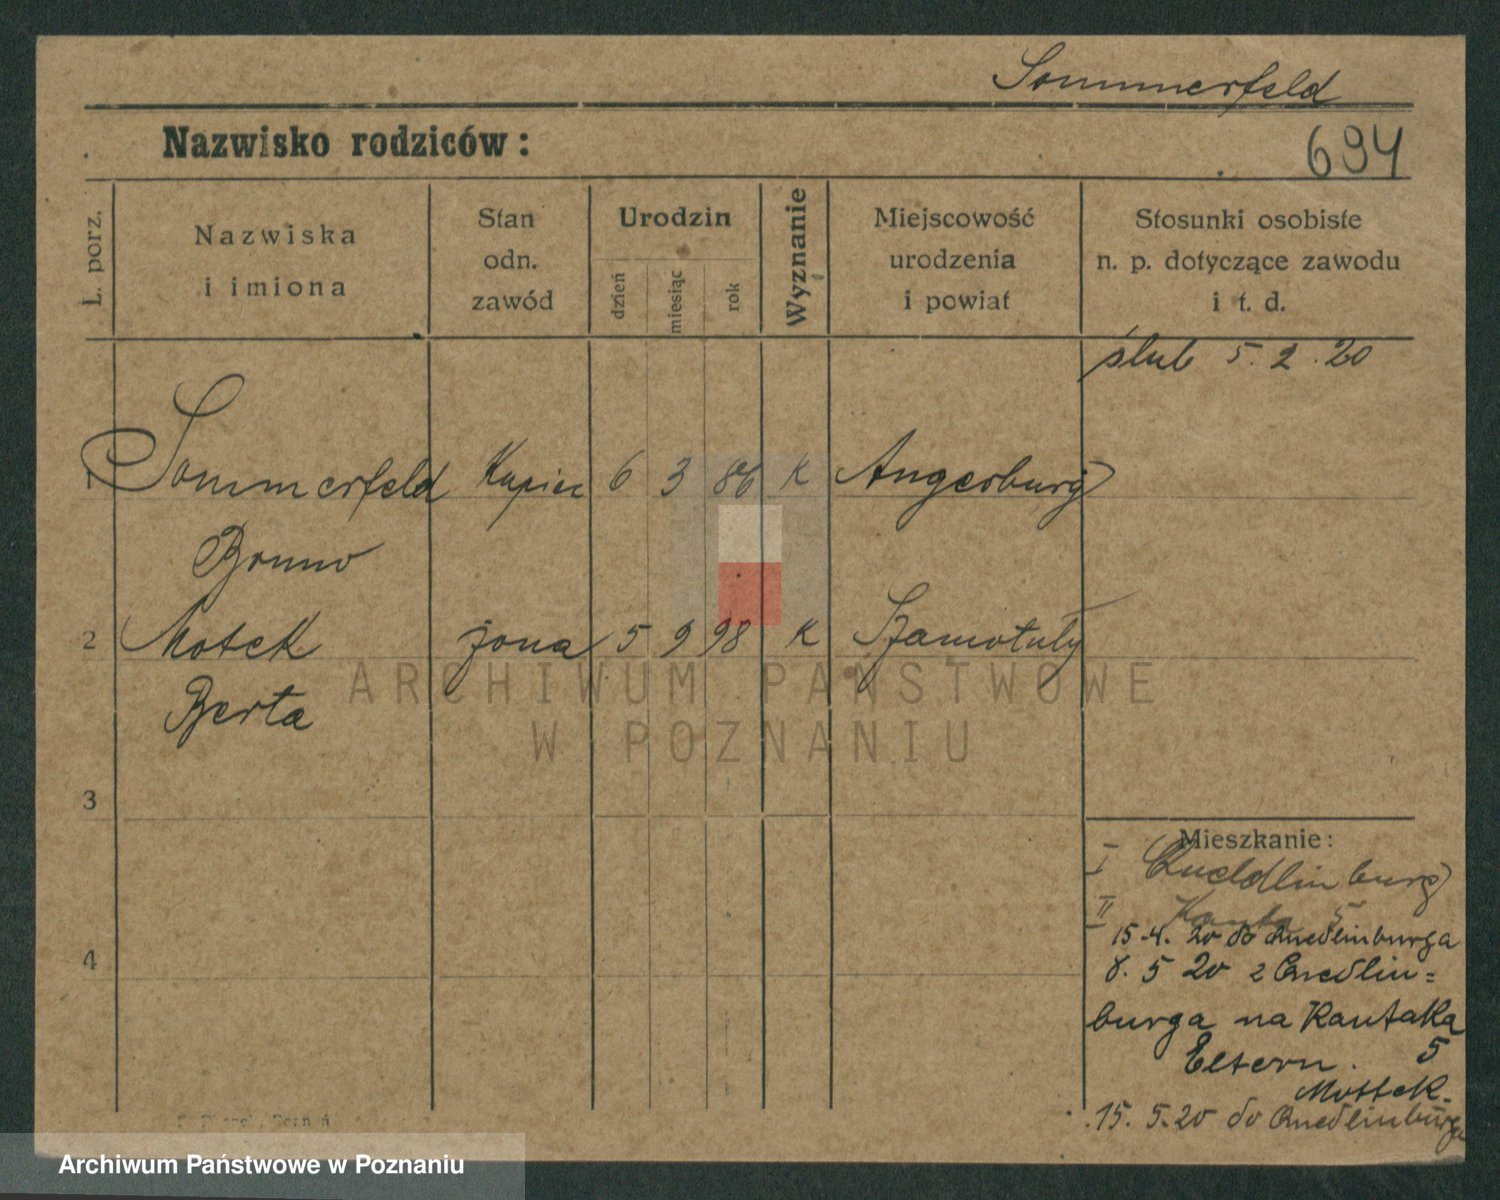 Sommerfeld
Nazwisko rodziców:
694
L. porz.
Nazwiska
i imiona
Stan
odn.
zawód
Urodzin
dzień
miesiąc
rok
Wyznanie
Miejscowość
urodzenia
i powiat
Stosunki osobiste
n. p. dotyczące zawodu
i t. d.
ślub 5.2.20
1 Sommerfeld Kupiec 6 3 86 K Angerburg
Bruno
2 Motek żona 5 9 98 K Szamotuły
Berta
ARCHIWUM PAŃSTWOWE
W POZNANIU
3
Mieszkanie:
I Quedlinburg
II 5
15.4.20 do Quedlinburga
4
8.5 20 z Quedlin=
burga na Kantaka
Eltern. 5
Mottek.
15.5.20 do Quedlinburga
Archiwum Państwowe w Poznaniu